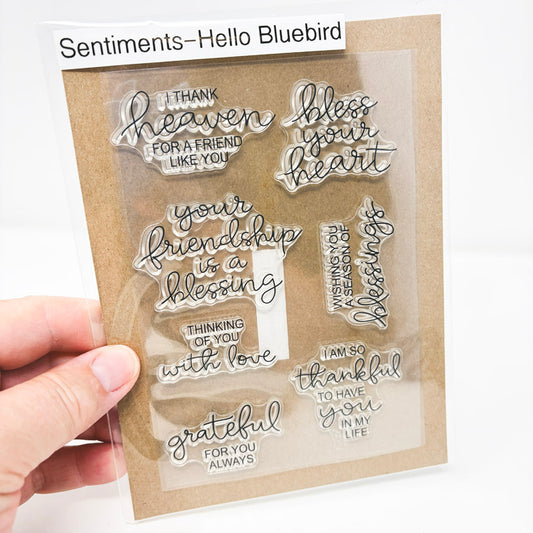 Sentiments-Hello Bluebird
I THANK
heaven
FOR A FRIEND
LIKE YOU
bless
your
heart
your
friendship
is a
blessing
WISHING YOU
A SEASON OF
blessings
THINKING
OF YOU
with love
I AM SO
thankful
TO HAVE
you
IN MY
LIFE
grateful
FOR YOU
ALWAYS